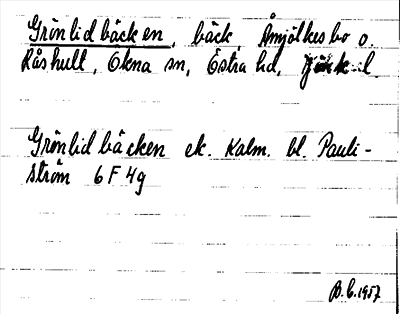 Grönlidbäcken, bäck, Åmjölkesbo o.
Råshult, Ökna sn, Östra hd, Jönk. l.
Grönlidbäcken ek. Kalm. bl. Pauli-
ström 6 F 4g
B.E. 1957